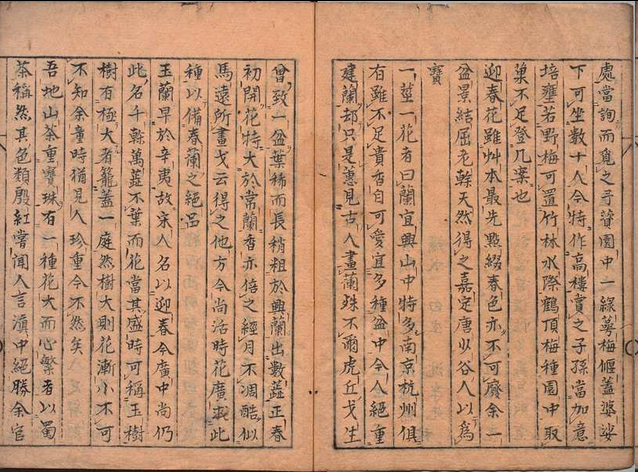 處當詢而覓之予貲園中一綠萼梅偃蓋婆娑
下可坐數十人今特作高樓賞之子孫當加意
培壅若野梅可置竹林水際鶴頂梅種園中取
菓不足登几案也
迎春花雖艸本最先點綴春色亦不可廢余一
盆景結屈老榦天然得之嘉定唐少谷人以為
寶
一莖一花者曰蘭宜興山中特多南京杭州俱
有雖不足貴香自可愛宜多種盆中今人絕重
建蘭却只是蕙見古人畫蘭珠不爾虎丘戈生
曾致一盆葉稀而長稍粗於興蘭出數蕋正春
初開花特大於常蘭香亦倍之經月不凋酷似
馬遠所畫戈云得之他方今尚活時花廣求此
種以備春蘭之絕品
玉蘭早於辛夷故宋人名以迎春今廣中尚仍
此名千榦萬蕋不葉而花當其盛時可稱玉樹
樹有極大者籠蓋一庭然樹大則花漸小不可
不知余童時猶見人珍重今不然矣
吾地山茶重寶珠有一種花大而心繁者以蜀
茶稱然其色類殷紅嘗聞人言滇中絕勝余官